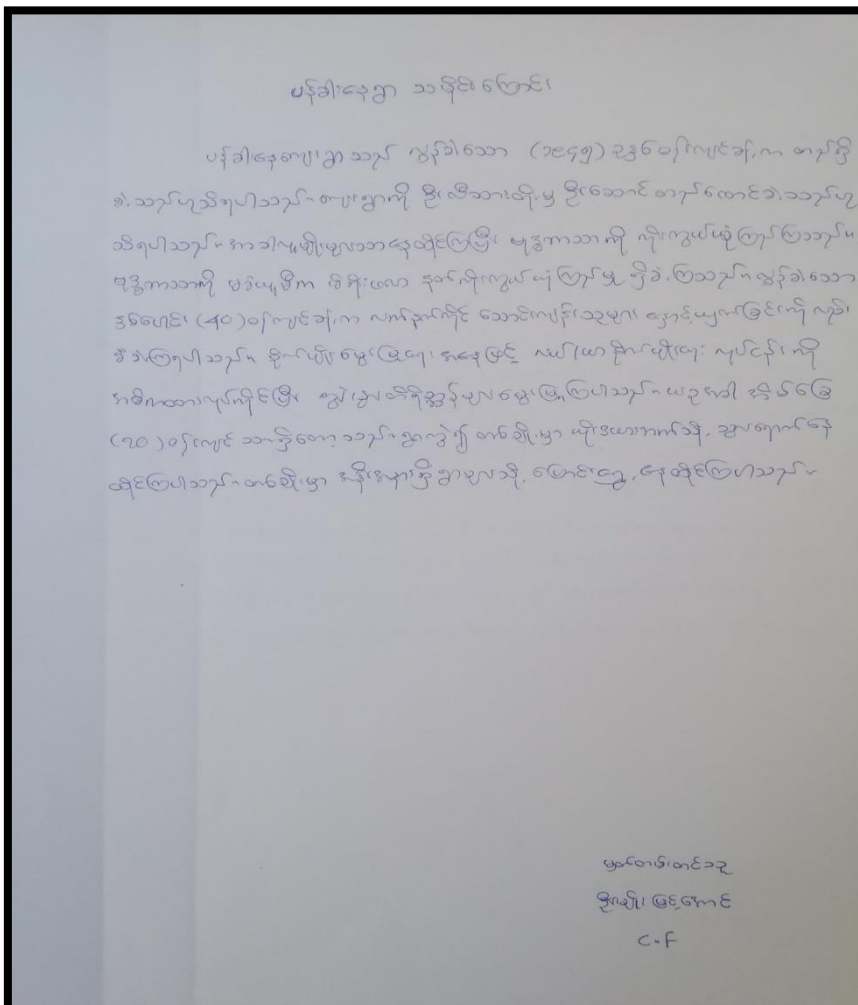 ပန်ခါးနေရွာ သမိုင်းကြောင်း
ပန်ခါးနေကျေးရွာသည် လွန်ခဲ့သော (၁၉၄၅) ခုနှစ်ဝန်းကျင်ခန့်က တည်ရှိ
ခဲ့သည်ဟုသိရပါသည်။ ကျေးရွာကို ဦးလီသားတို့မှ ဦးဆောင်တည်ထောင်ခဲ့သည်ဟု
သိရပါသည်။ အာခါလူမျိုးများသာနေထိုင်ကြပြီး ဗုဒ္ဓဘာသာကို ကိုးကွယ်ယုံကြည်ကြသည်။
ဗုဒ္ဓဘာသာကို မခံယူမီက မိရိုးဖလာ နတ်ကိုးကွယ်ယုံကြည်မှု ရှိခဲ့ကြသည်။ လွန်ခဲ့သော
နှစ်ပေါင်း (၄၀) ဝန်းကျင်ခန့်က လက်နက်ကိုင် သောင်းကျန်းသူများ နှောင့်ယှက်ခြင်းကိုလည်း
ခံခဲ့ကြရပါသည်။ စိုက်ပျိုးမွေးမြူရေး အနေဖြင့် လယ်/ယာ စိုက်ပျိုးရေး လုပ်ငန်းကို
အဓိကထားလုပ်ကိုင်ပြီး ကျွဲ၊ နွား တိရိစ္ဆာန်များမွေးမြူကြပါသည်။ ယခုအခါ အိမ်ခြေ
(၇၀) ဝန်းကျင် သာရှိတော့သည်။ ရွာကွဲ၍ တစ်ချို့မှာ ယိုးဒယားဘက်သို့ သွားရောက်နေ
ထိုင်ကြပါသည်။ တစ်ချို့မှာ အနီးအနားရှိရွာများသို့ ပြောင်းရွှေ့နေထိုင်ကြပါသည်။
မှတ်တမ်းတင်သူ
ဦးမျိုးမြင့်အောင်
C.F